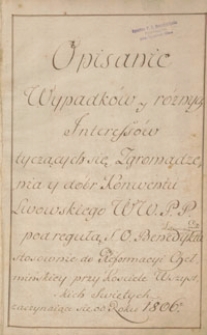 Opisanie
Wypadków y różnych
Interessów
tyczących się Zgromadze,
nia y dóbr Konwentu
Lwowskiego W W. P. P.
pod regułą S. O. Benedykta
stosownie do Reformacyi Chel
minskiey przy Kościele Wszyst
kich Swiętych
zaczynaiące się od Roku 1806.